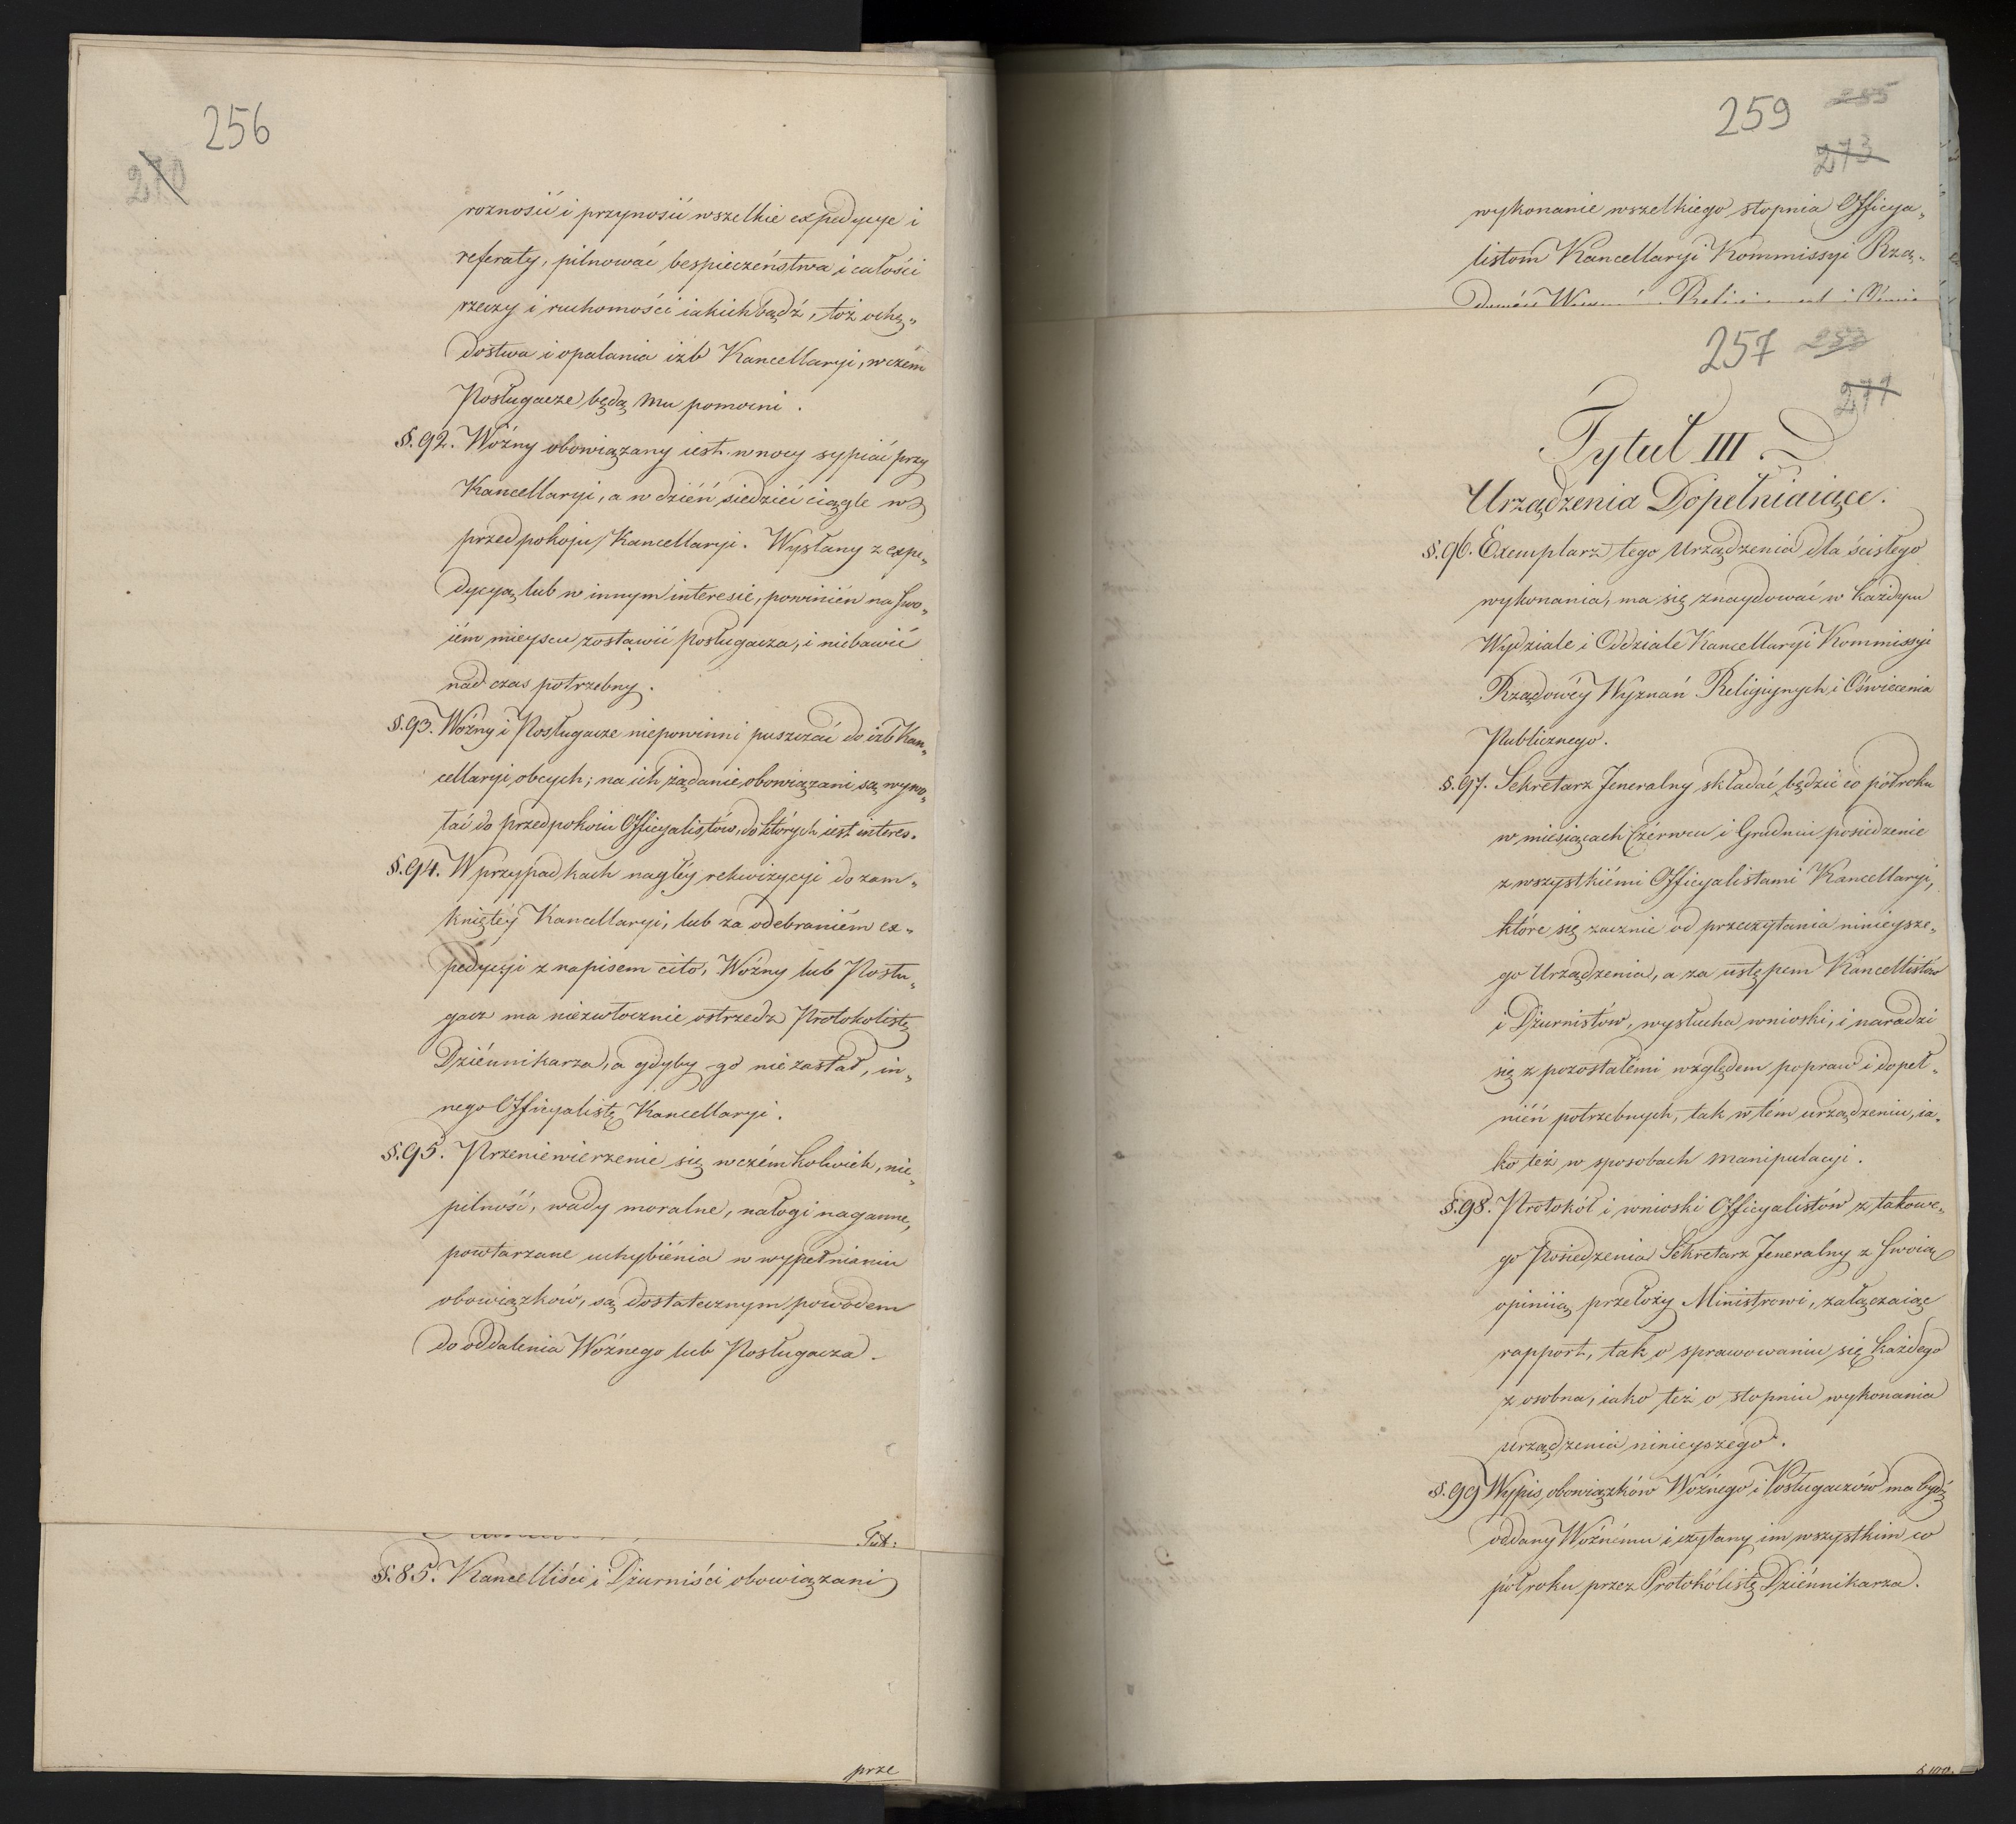 256
270
roznosić i przynosić wszelkie expedycye i
referaty, pilnować bespieczeństwa i całości
rzeczy i ruchomości iakichbądź, toż ochę„
dostwa i opalania izb Kancellaryi, w czém
Posługacze będą mu pomocni.
§.92. Woźny obowiązany iest w nocy sypiać przy
Kancellaryi, a w dzień siedzieć ciągle w
przedpokoju Kancellaryi. Wysłany z expe„
dycyą lub w innym interesie, powinién na swo„
iém mieyscu zostawić Posługacza, i niebawić
nad czas potrzebny.
§.93. Woźny i Posługacze niepowinni puszczać do izb Kan„
cellaryi obcych; na ich żądanie obowiązani są wywo„
łać do przedpokoiu Officyalistów, do których iest interes.
§.94. W przypadkach nagłéy rekwizycyi do zam„
kniętéy Kancellaryi, lub za odebraniém ex„
pedycyi z napisem cito, Woźny lub Posłu„
gacz ma niezwłocznie ostrzedz Protokolistę
Dziénnikarza, a gdyby go nie zastał, in„
nego Officyalistę Kancellaryi.
§.95. Przeniewierzenie się w czémkolwiek, nie„
pilność, wady moralne, nałogi naganne,
powtarzane uchybiénia w wypełnianiu
obowiązków, są dostatecznym powodem
do oddalenia Woźnego lub Posługacza.
Tut:
§.85. Kancelliści i Dżurniści obowiązani
prze
259
273
wykonanie wszelkiego stopnia Officya„
listom Kancellaryi Kommissyi Rzą„
257
271
Tytuł III
Urządzenia Dopełniaiące.
§.96. Exemplarz tego Urządzenia dla ścisłego
wykonania, ma się znaydować w każdym
Wydziale i Oddziale Kancellaryi Kommissyi
Rządowéy Wyznań Religijnych i Oświecenia
Publicznego.
§.97. Sekretarz Jeneralny składać będzie co półroku
w miesiącach Czérwcu i Grudniu posiedzenie
z wszystkiémi Officyalistami Kancellaryi,
które się zacznie od przeczytania ninieysze„
go Urządzenia, a za ustępem Kancellistów
i Dżurnistów, wysłucha wnioski, i naradzi
się z pozostałémi względem popraw i dopeł„
nień potrzebnych, tak w tém urządzeniu, ia„
ko też w sposobach manipulacyi.
§.98. Protokół i wnioski Officyalistów z takowe„
go Posiedzenia Sekretarz Jeneralny z swoią
opiniią przełoży Ministrowi, załączaiąc
rapport, tak o sprawowaniu się każdego
z osobna, iako też o stopniu wykonania
urządzenia ninieyszego.
§.99 Wypis obowiązków Woźnego i Posługaczów ma bydź
oddany Woźnému i czytany im wszystkim co
półroku przez Protokólistę Dziénnikarza.
§.100.